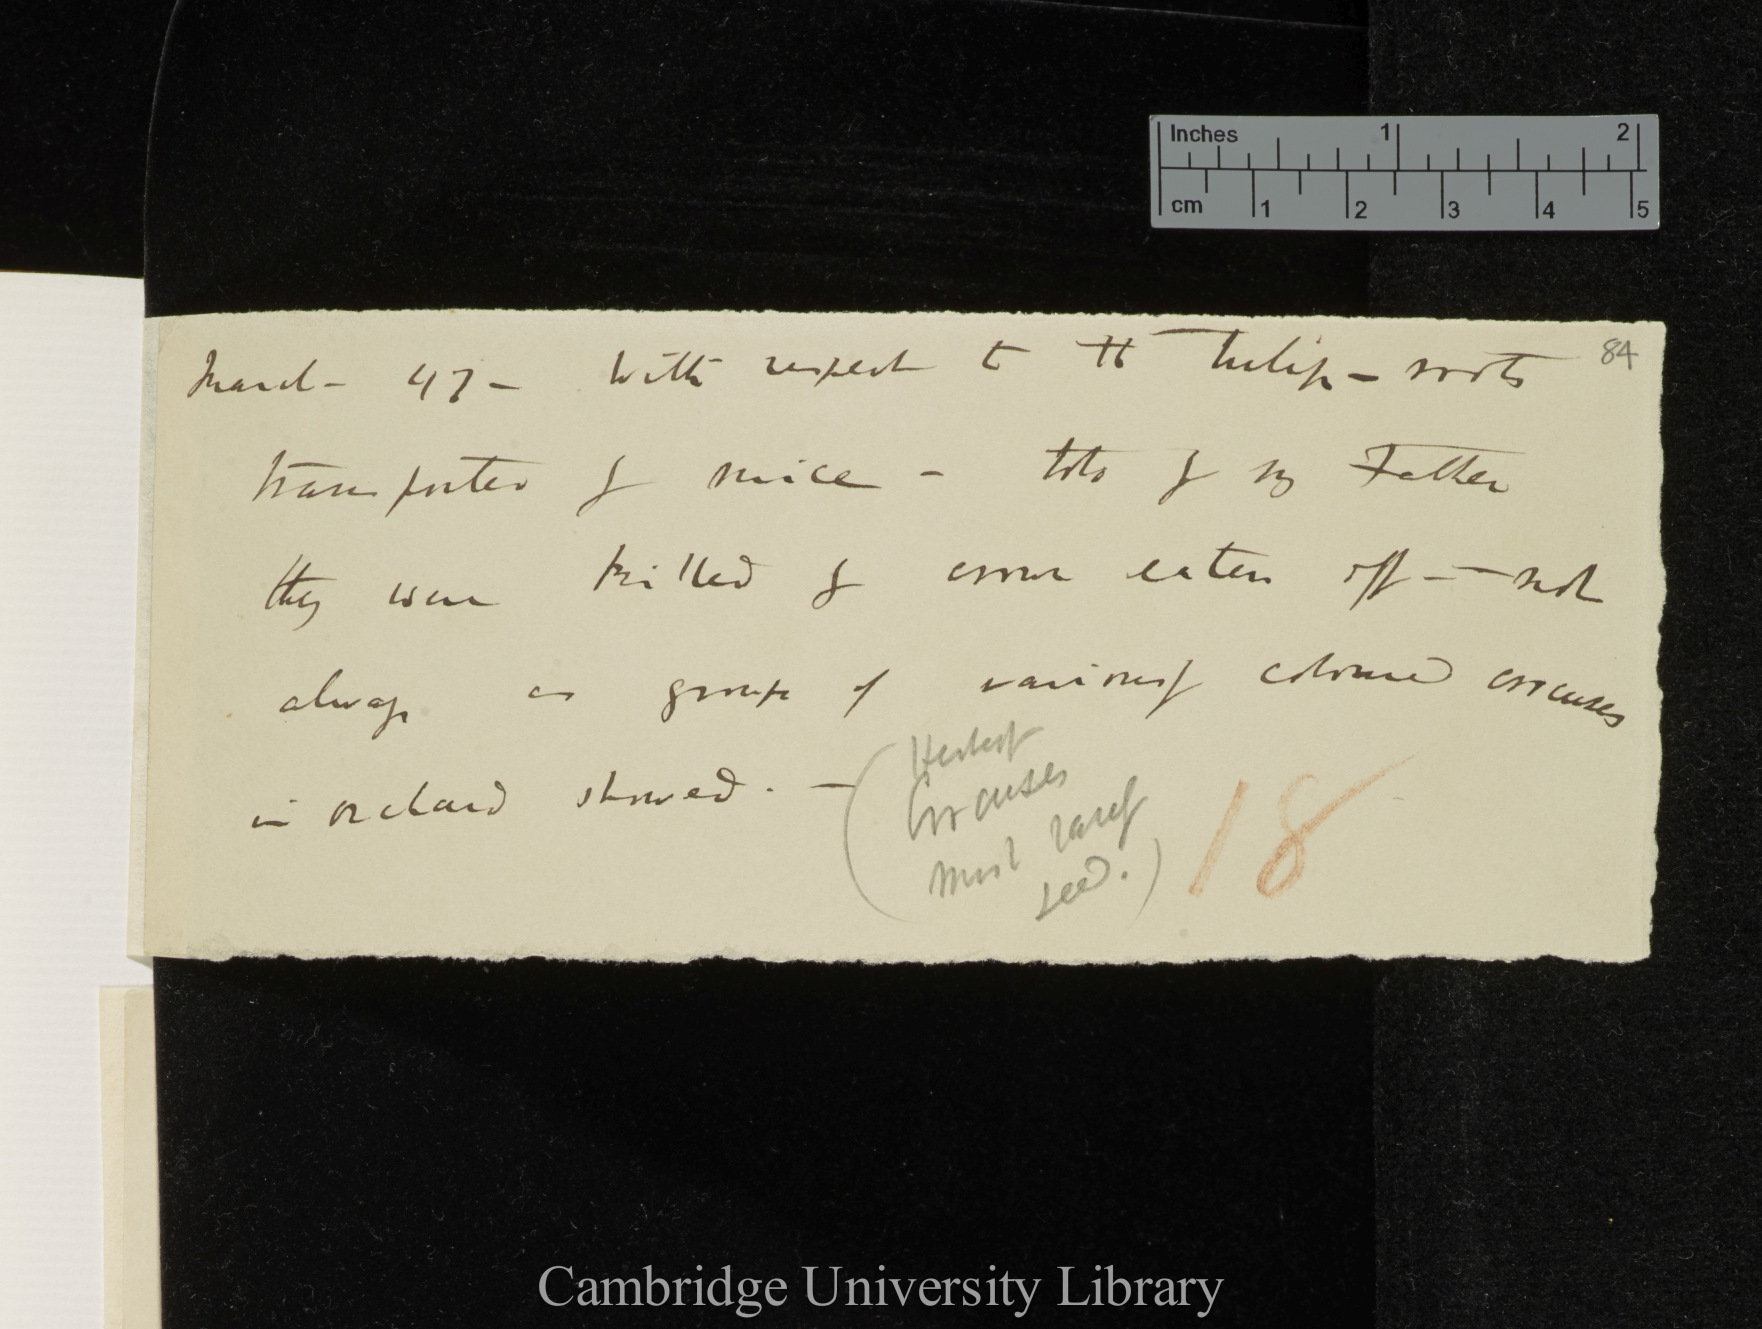 Inches 1 2
cm 1 2 3 4 5
84
March 47 – With respect to the tulip – roots
transported by mice – told by my Father
they were killed by crown eaten off – not
always as groups of variously coloured crocuses
in orchard showed. – (Herbert
Crocuses
must rarely
seed.)
18
Cambridge University Library